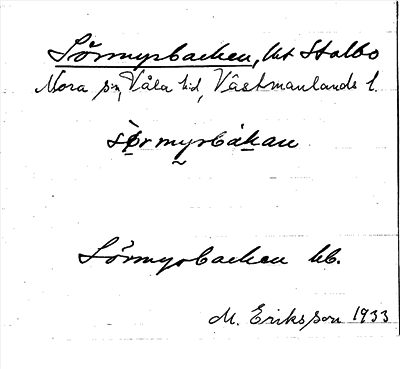 Sörmyrbacken, lht Stalbo
Nora sn, Våla hd, Västmanlands l.
sörmyrbakan
Sörmyrbacken kb.
M. Eriksson 1933